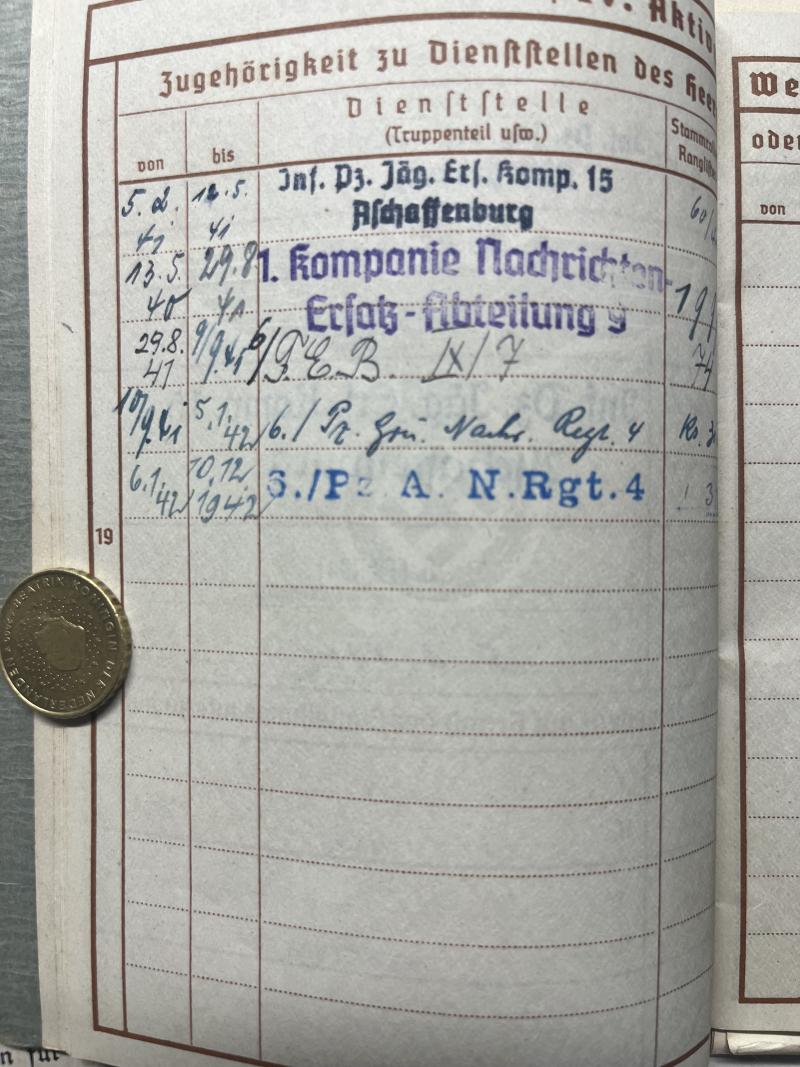 IV. Aktiv
Zugehörigkeit zu Dienststellen des Heer
von
bis
Dienststelle
(Truppenteil usw.)
Stammro
Rangliste
5.2.
41
12.5.
41
Inf. Pz. Jäg. Ers. Komp. 15
Aschaffenburg
60/
13.5.
40
29.8
41
1. Kompanie Nachrichten-
Ersatz-Abteilung 9
19
29.8.
41
9/9.41
6/F.E.B. IX/7
74
10/9.41
5.1.
42
6./Pz. Gru. Nachr. Regt. 4
6.1.
42
10.12.
1942
6./Pz A. N.Rgt.4
3
19
We
oder
von
BEATRIX KONINGIN DER NEDERLANDEN
n für